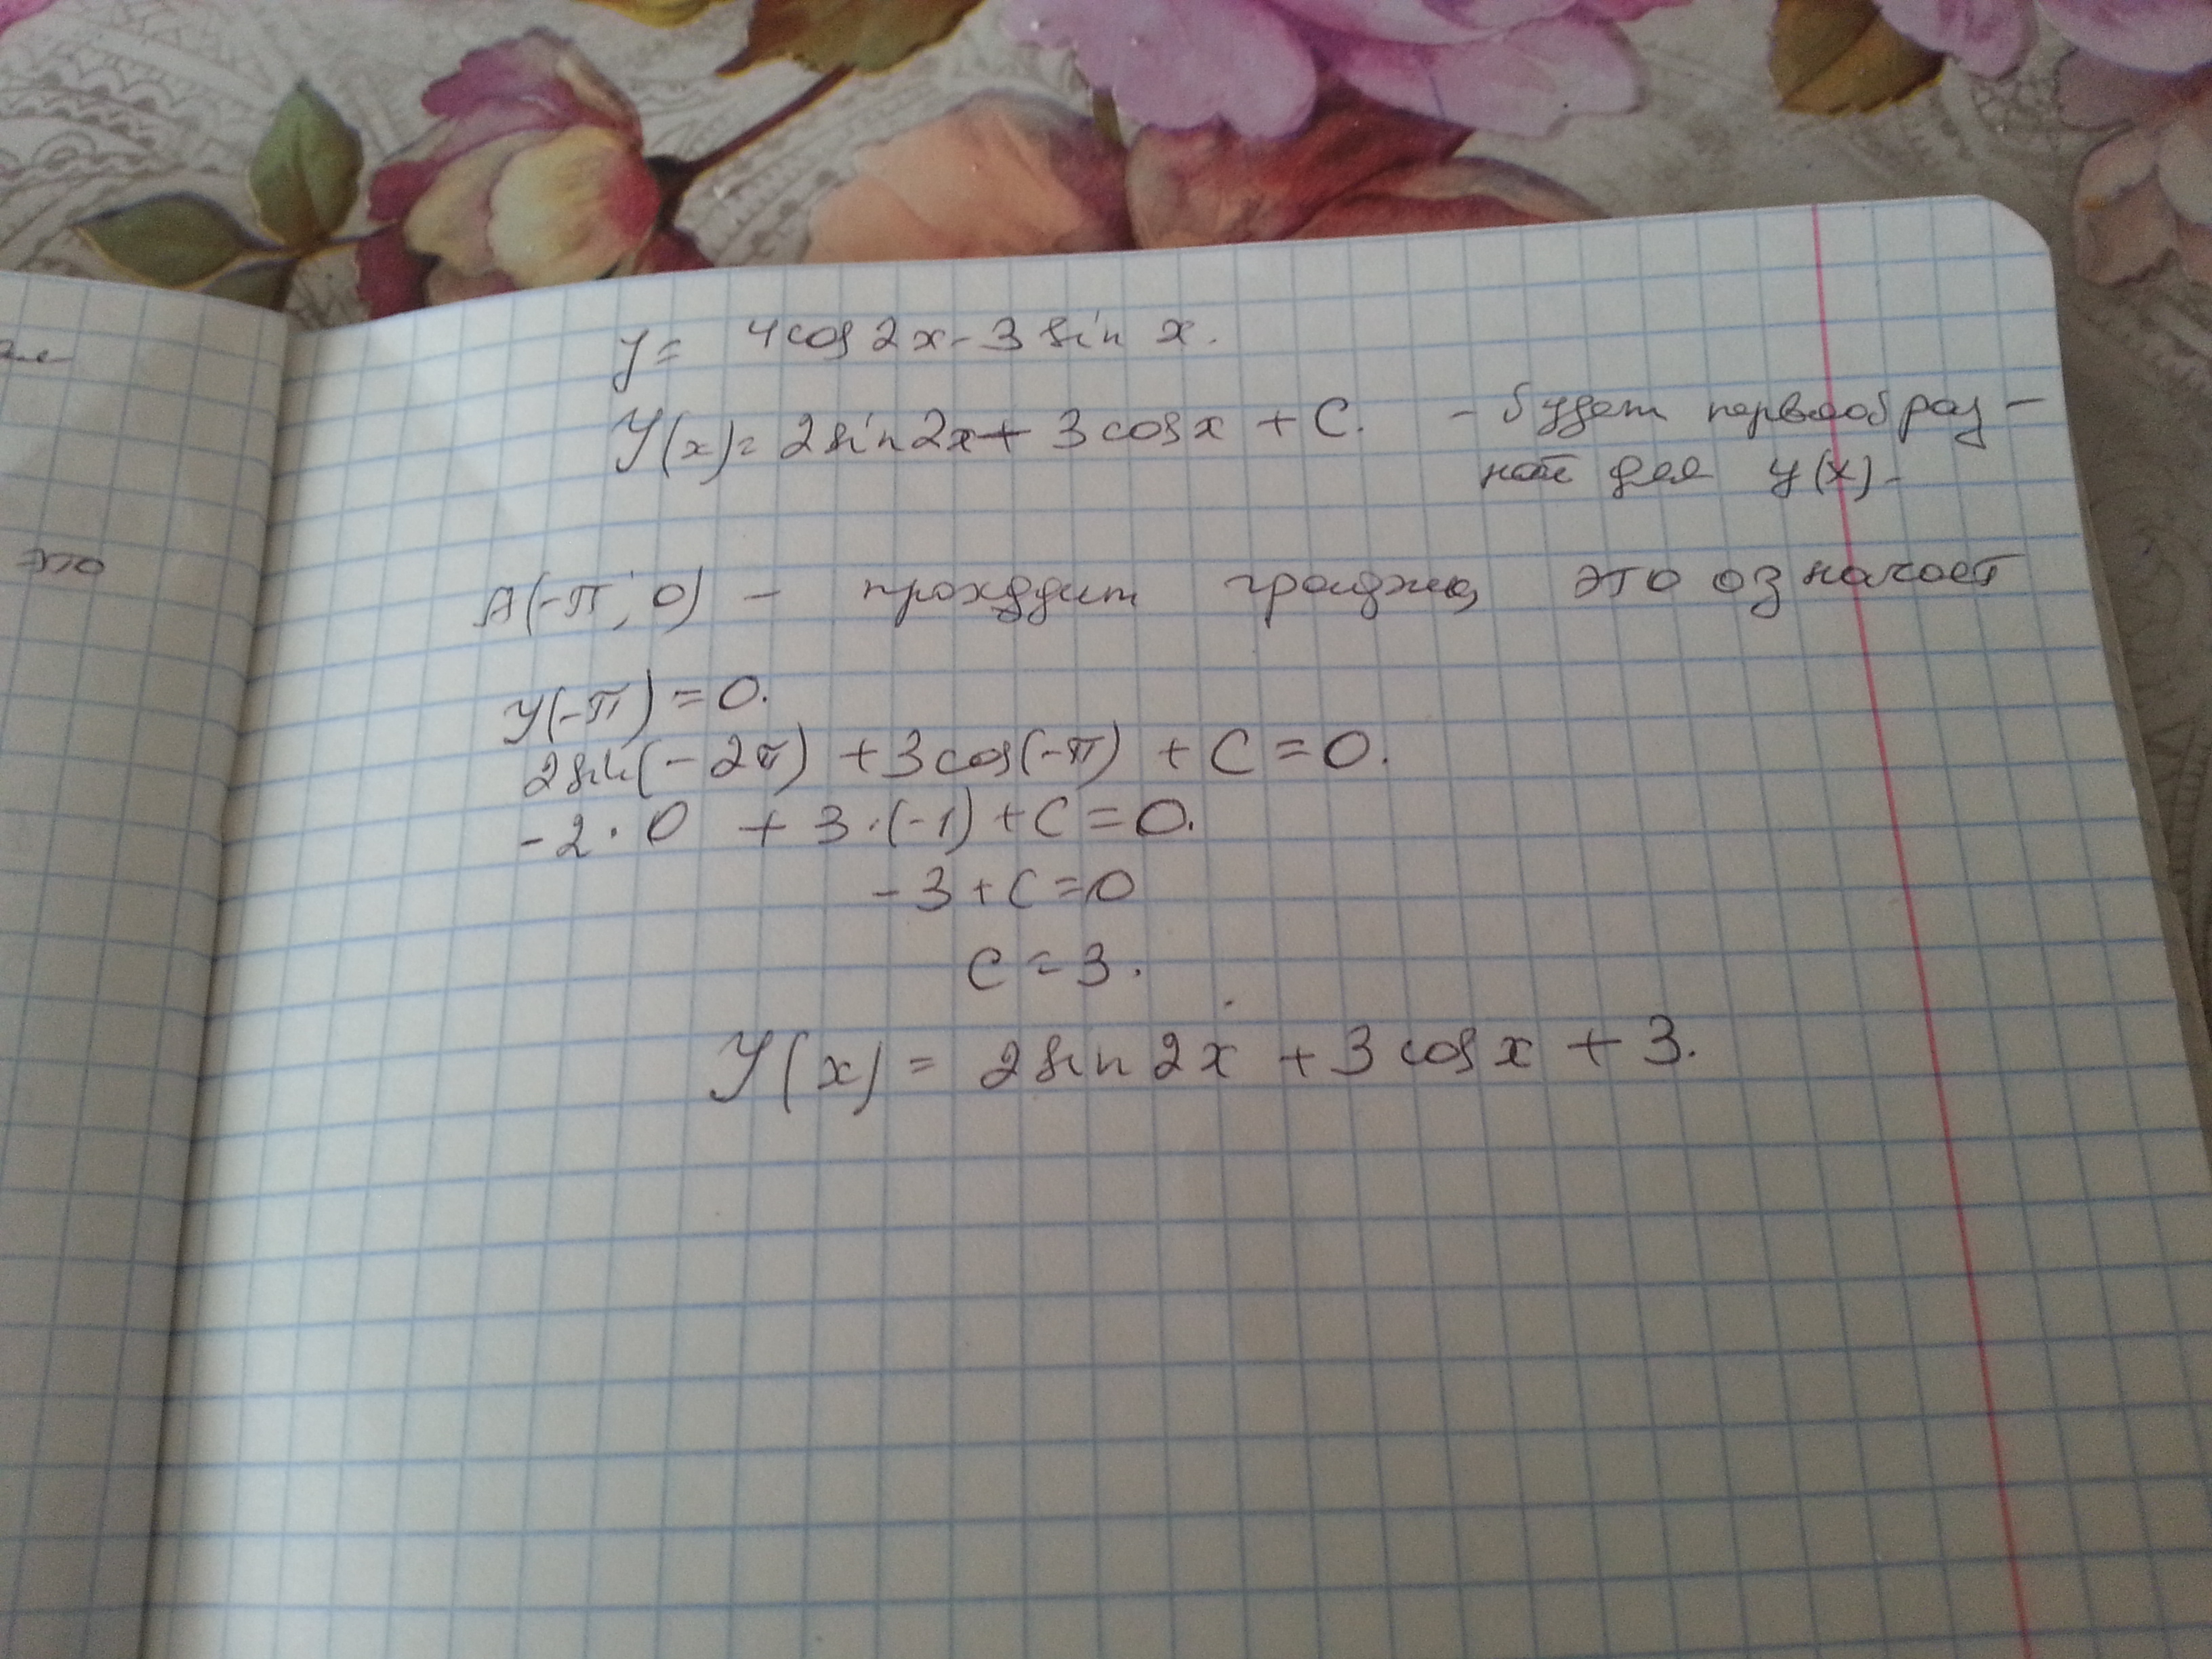 y = 4cos2x - 3 sin x.
Y(x) = 2sin2x + 3cosx + C. - будет первообраз-
ной для y(x).
это
A(-π; 0) - проходит график, это означает
Y(-π) = 0.
2sin(-2π) + 3cos(-π) + C = 0.
-2 · 0 + 3·(-1) + C = 0.
-3 + C = 0
C = 3.
Y(x) = 2sin2x + 3cosx + 3.